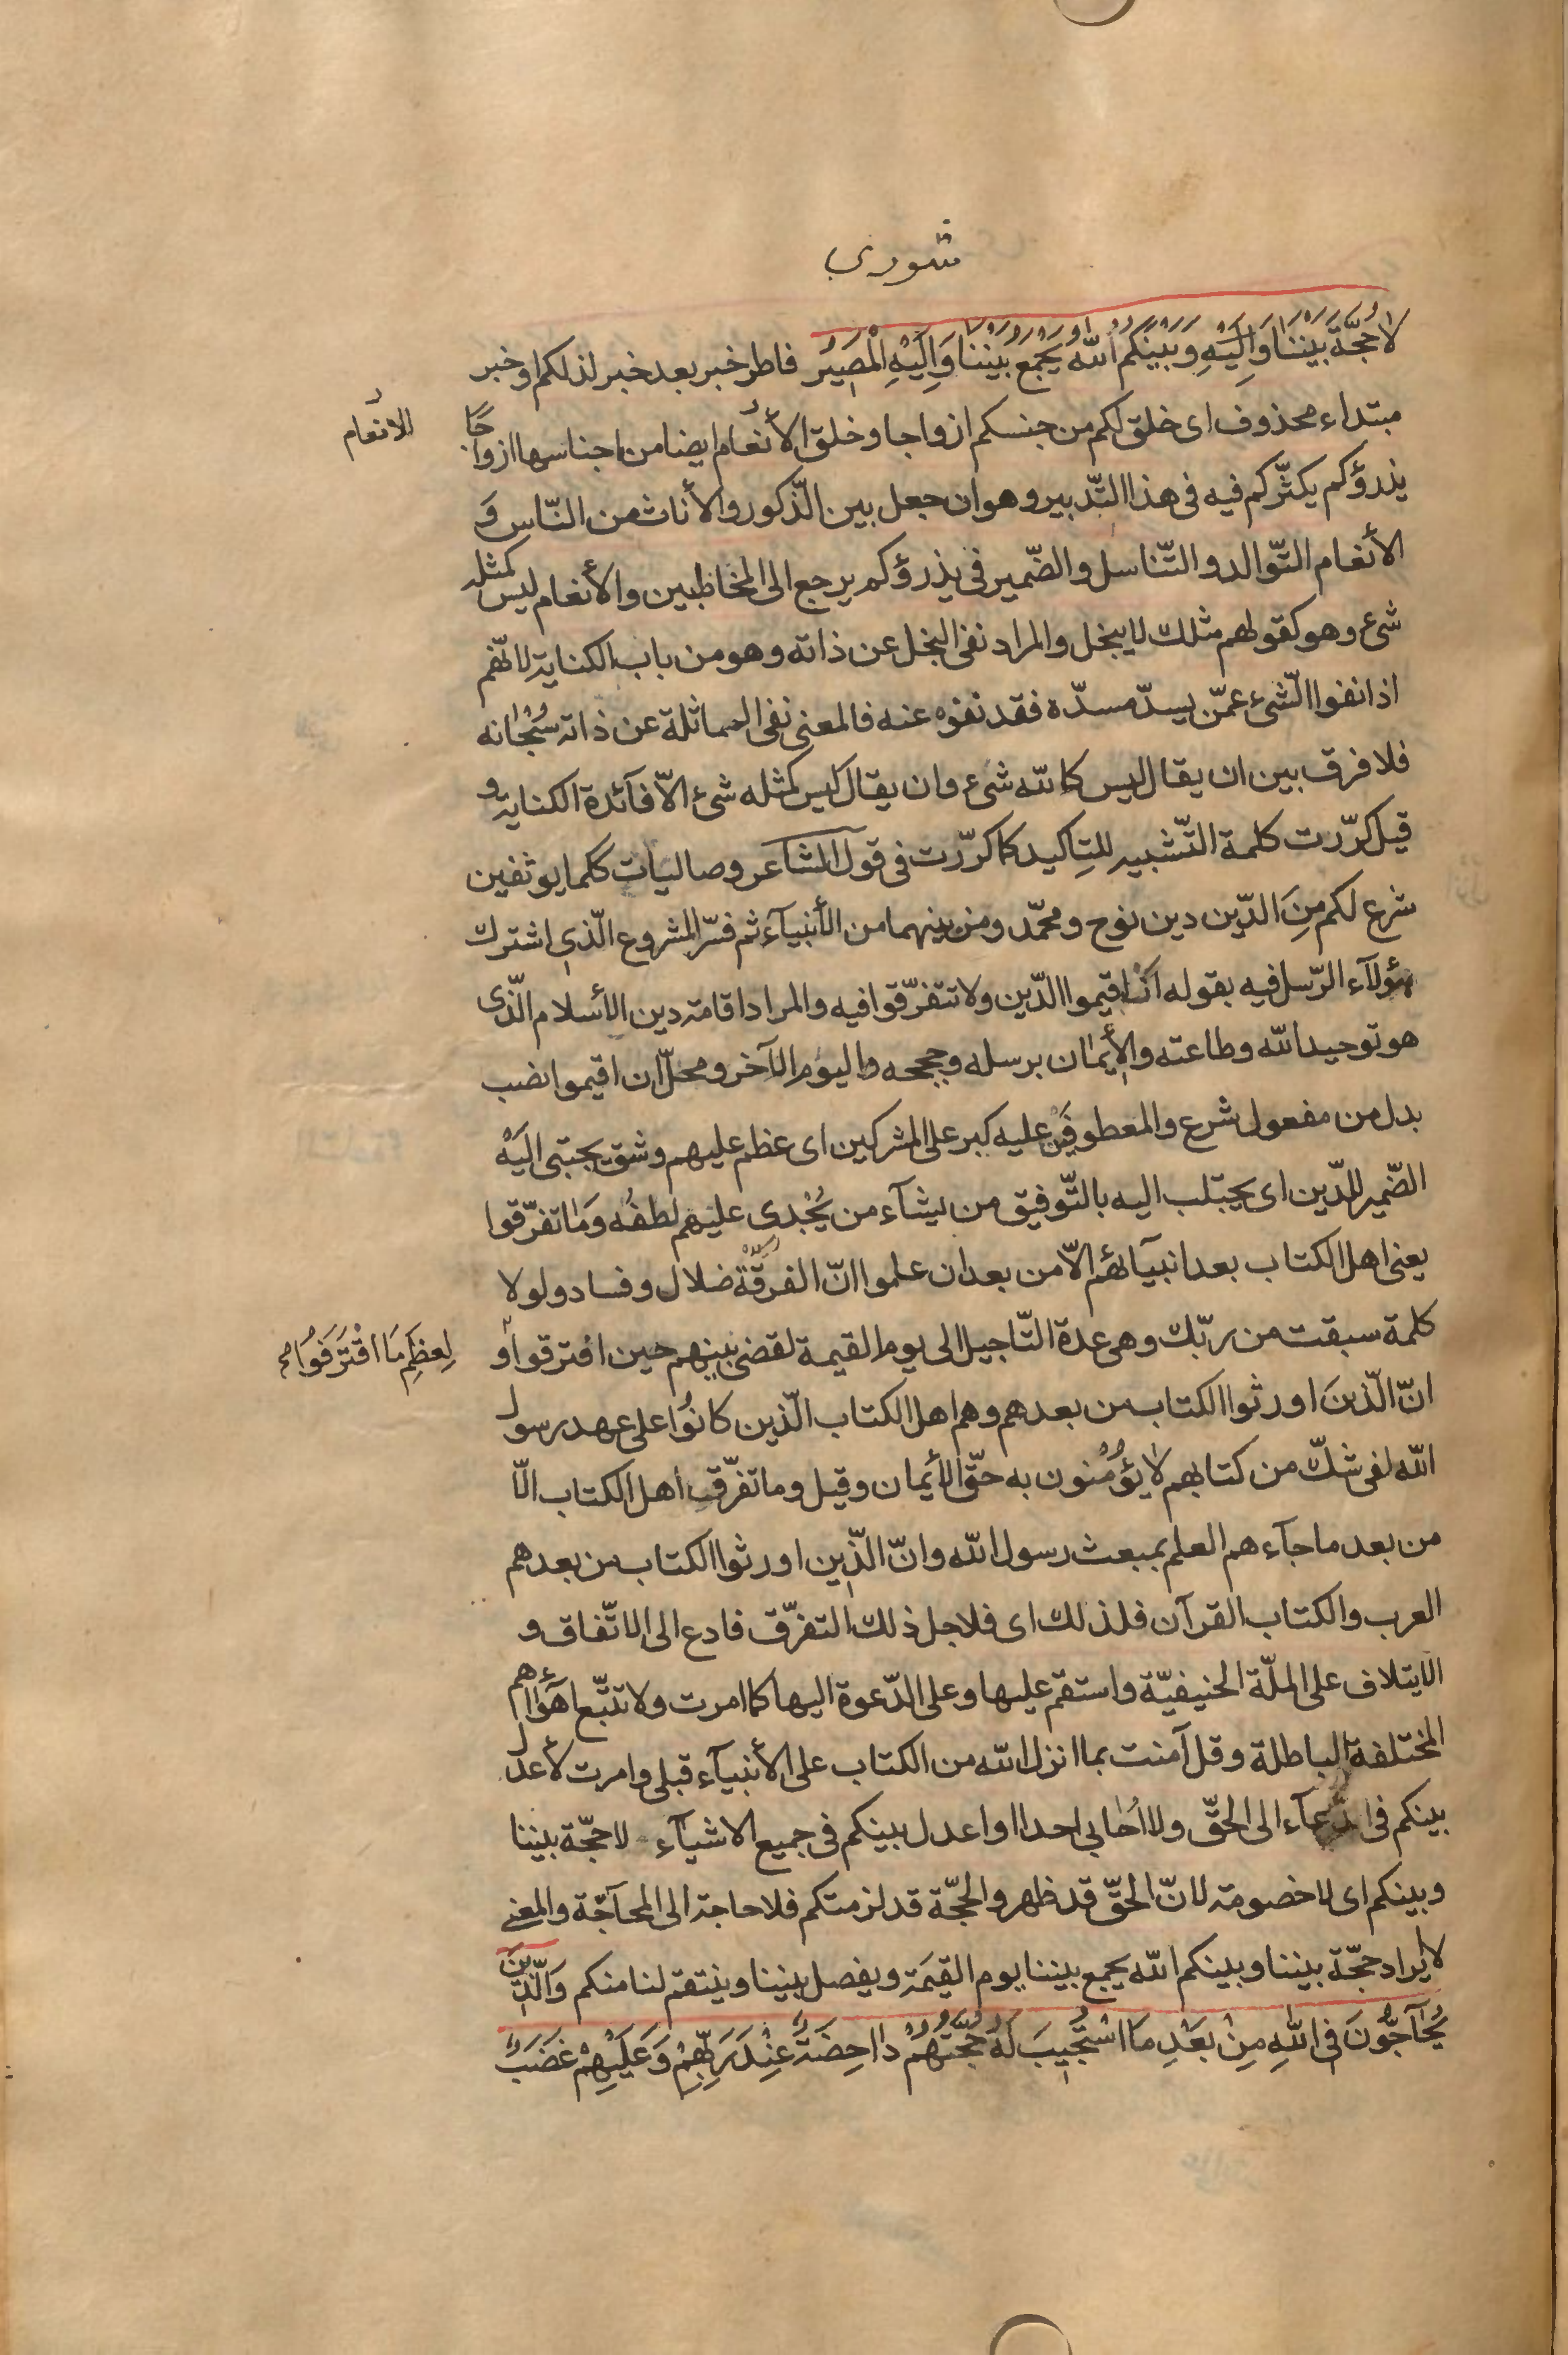 شورى
لا حُجَّةَ بَيْنَنَا وَاِلَيْهِ وَبَيْنَكُمُ اللهُ يَجْمَعُ بَيْنَنَا وَاِلَيْهِ الْمَصِيرُ فاطر خبر بعد خبر لذلكم او خبر
مبتداء محذوف اى خلق لكم من جنسكم ازواجا وخلق الأنعام ايضا من اجناسها ازواجًا
الانعام
يذرؤكم يكثّركم فيه فى هذا التّدبير وهو ان جعل بين الذّكور والأناث من النّاس وَ
الأنعام التّوالد والتّناسل والضّمير فى يذرؤكم يرجع الى المخاطبين والأنعام ليس كمثله
شىء وهو كقولهم مثلك لا يبخل والمراد نفى البخل عن ذاته وهو من باب الكناية لانّهم
اذا نفوا الشّىء عمّن يسدّ مسدّه فقد نفوه عنه فالمعنى نفى المماثلة عن ذاته سُبْحانه
فلا فرق بين ان يقال ليس كالله شىء وان يقال ليس كمثله شىء الّا فآئدة الكناية و
قيل كرّرت كلمة التّشبيه للتاكيد كما كرّرت فى قول الشّاعر وصاليات ككما يوثفين
شرع لكم مِنَ الدّين دين نوح ومحمّد ومن بينهما من الأنبيآء ثم فسّر المشروع الّذى اشترك
هؤلآء الرّسل فيه بقوله اَنْ اقيموا الدّين ولا تتفرّقوا فيه والمراد اقامة دين الأسلام الّذى
هو توحيد الله وطاعته والأيمان برسله وحججه واليوم الآخر ومحلّ ان اقيموا نصب
بدل من مفعول شرع والمعطوفين عليه كبر على المشركين اى عظم عليهم وشق يجتبى اليَهْ
الضّمير للدّين اى يجتلب اليه بالتّوفيق من يشآء من يُجْدى عليهم لطفُه وَما تفرّقوا
يعنى اهل الكتاب بعد انبيآئهم الّا من بعد ان علموا انّ الفرقة ضلال وفساد ولولا
كلمة سبقت من ربّك وهى عدة التّاجيل الى يوم القيمة لقضى بينهم حين افترقوا و
لِعِظَمِ مَا اقْتَرَفُوا صح
انّ الّذينَ اورثوا الكتاب من بعدهم وهم اهل الكتاب الّذين كانُوا على عهد رسول
الله لفى شكّ من كتابهم لا يؤمنون به حقّ الأيمان وقيل وما تفرّق اهل الكتاب الّا
من بعد ما جآءهم العلم بمبعث رسول الله وانّ الّذين اورثوا الكتاب من بعدهم
العرب والكتاب القرآن فلذلك اى فلاجل ذلك التفرّق فادع الى الاتّفاق و
الايتلاف على الملّة الحنيفيّة واستقم عليها وعلى الدّعوة اليها كما امرت ولا تتّبع اهوآءهم
المختلفة الباطلة وقل آمنت بما انزل الله من الكتاب على الأنبيآء قبلى وامرت لأعدل
بينكم فى الدّعآء الى الحقّ ولا اُحابى احدا او اعدل بينكم فى جميع الاشيآء لا حجّة بيننا
وبينكم اى لا خصومة لانّ الحقّ قد ظهر والحجّة قد لزمتكم فلا حاجة الى المحآجّة والمعنى
لا يراد حجّة بيننا وبينكم الله يجمع بيننا يوم القيمَة ويفصل بيننا وينتقم لنا منكم وَالَّذِينَ
يُحآجُّونَ فِى اللهِ مِنْ بَعْدِ مَا اسْتُجِيبَ لَهُ حُجَّتُهُمْ دَاحِضَةٌ عِنْدَ رَبِّهِمْ وَعَلَيْهِمْ غَضَبٌ